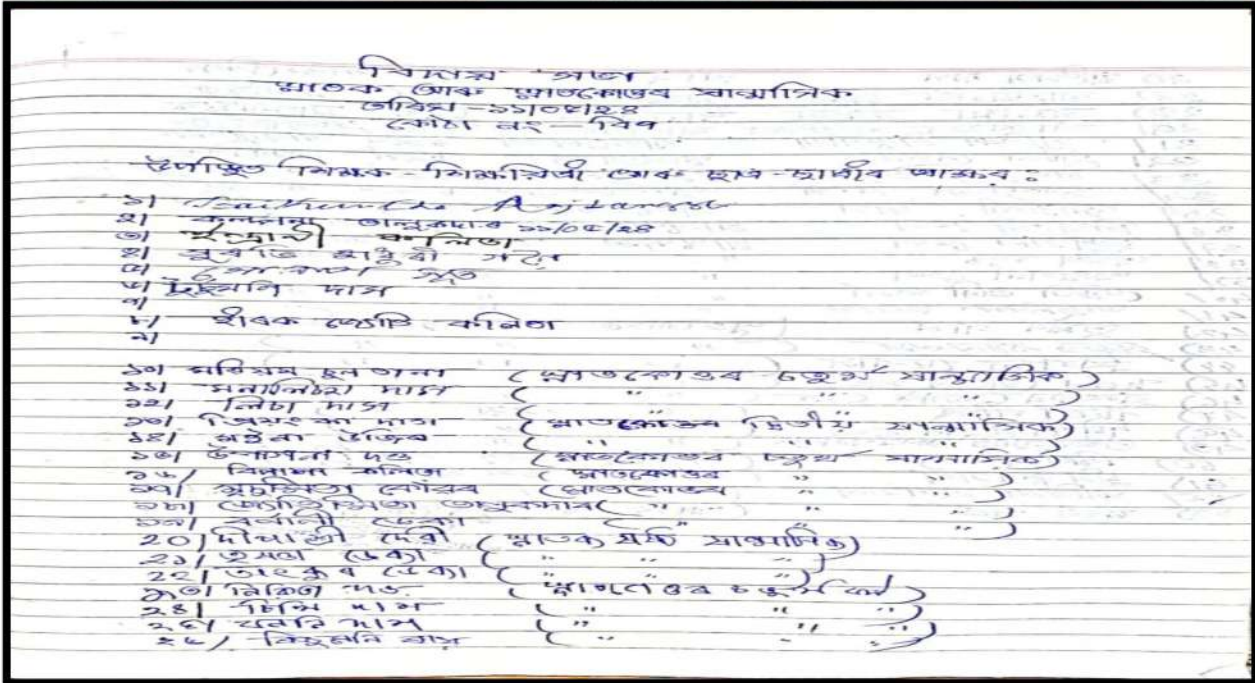 বিদায় সভা
স্নাতক আৰু স্নাতকোত্তৰ ষান্মাসিক
তাৰিখ -১১/০৫/২৪
কোঠা নং - বি৭
উপস্থিত শিক্ষক - শিক্ষয়িত্ৰী আৰু ছাত্ৰ - ছাত্ৰীৰ স্বাক্ষৰ :
১|
২| কল্পনা তালুকদাৰ ১১/০৫/২৪
৩| ইন্দ্ৰানী কলিতা
৪| সুৰভি মাধুৰী গগৈ
৫|
৬| টুটুমনি দাস
৭|
৮| হীৰক জ্যোতি কলিতা
৯|
১০| মৰিয়ম চুলতানা ( স্নাতকোত্তৰ চতুৰ্থ ষান্মাসিক )
১১| মনালিচা দাস ( " " " )
১২| লিচা দাস ( " " " )
১৩| প্ৰিয়ংকা দাস ( স্নাতকোত্তৰ দ্বিতীয় ষান্মাসিক )
১৪| অৰ্চনা উজিৰ ( " " " )
১৫| উপাসনা দত্ত ( স্নাতকোত্তৰ চতুৰ্থ ষান্মাসিক )
১৬| বিপাশা কলিতা ( স্নাতকোত্তৰ " " )
১৭| সুচস্মিতা কোঁৱৰ ( স্নাতকোত্তৰ " " )
১৮| জ্যোতিস্মিতা তালুকদাৰ ( " " " )
১৯| বৰ্ণালী ডেকা ( " " " )
২০| দীপাশ্ৰী দেৱী ( স্নাতক ষষ্ঠ ষান্মাসিক )
২১| ডেকা ( " " " )
২২| ডেকা ( " " " )
২৩| নিকিতা দত্ত ( স্নাতকোত্তৰ চতুৰ্থ )
২৪| চিম্পি দাস ( " " " )
২৫| দাস ( " " " )
২৬| ( " " " )